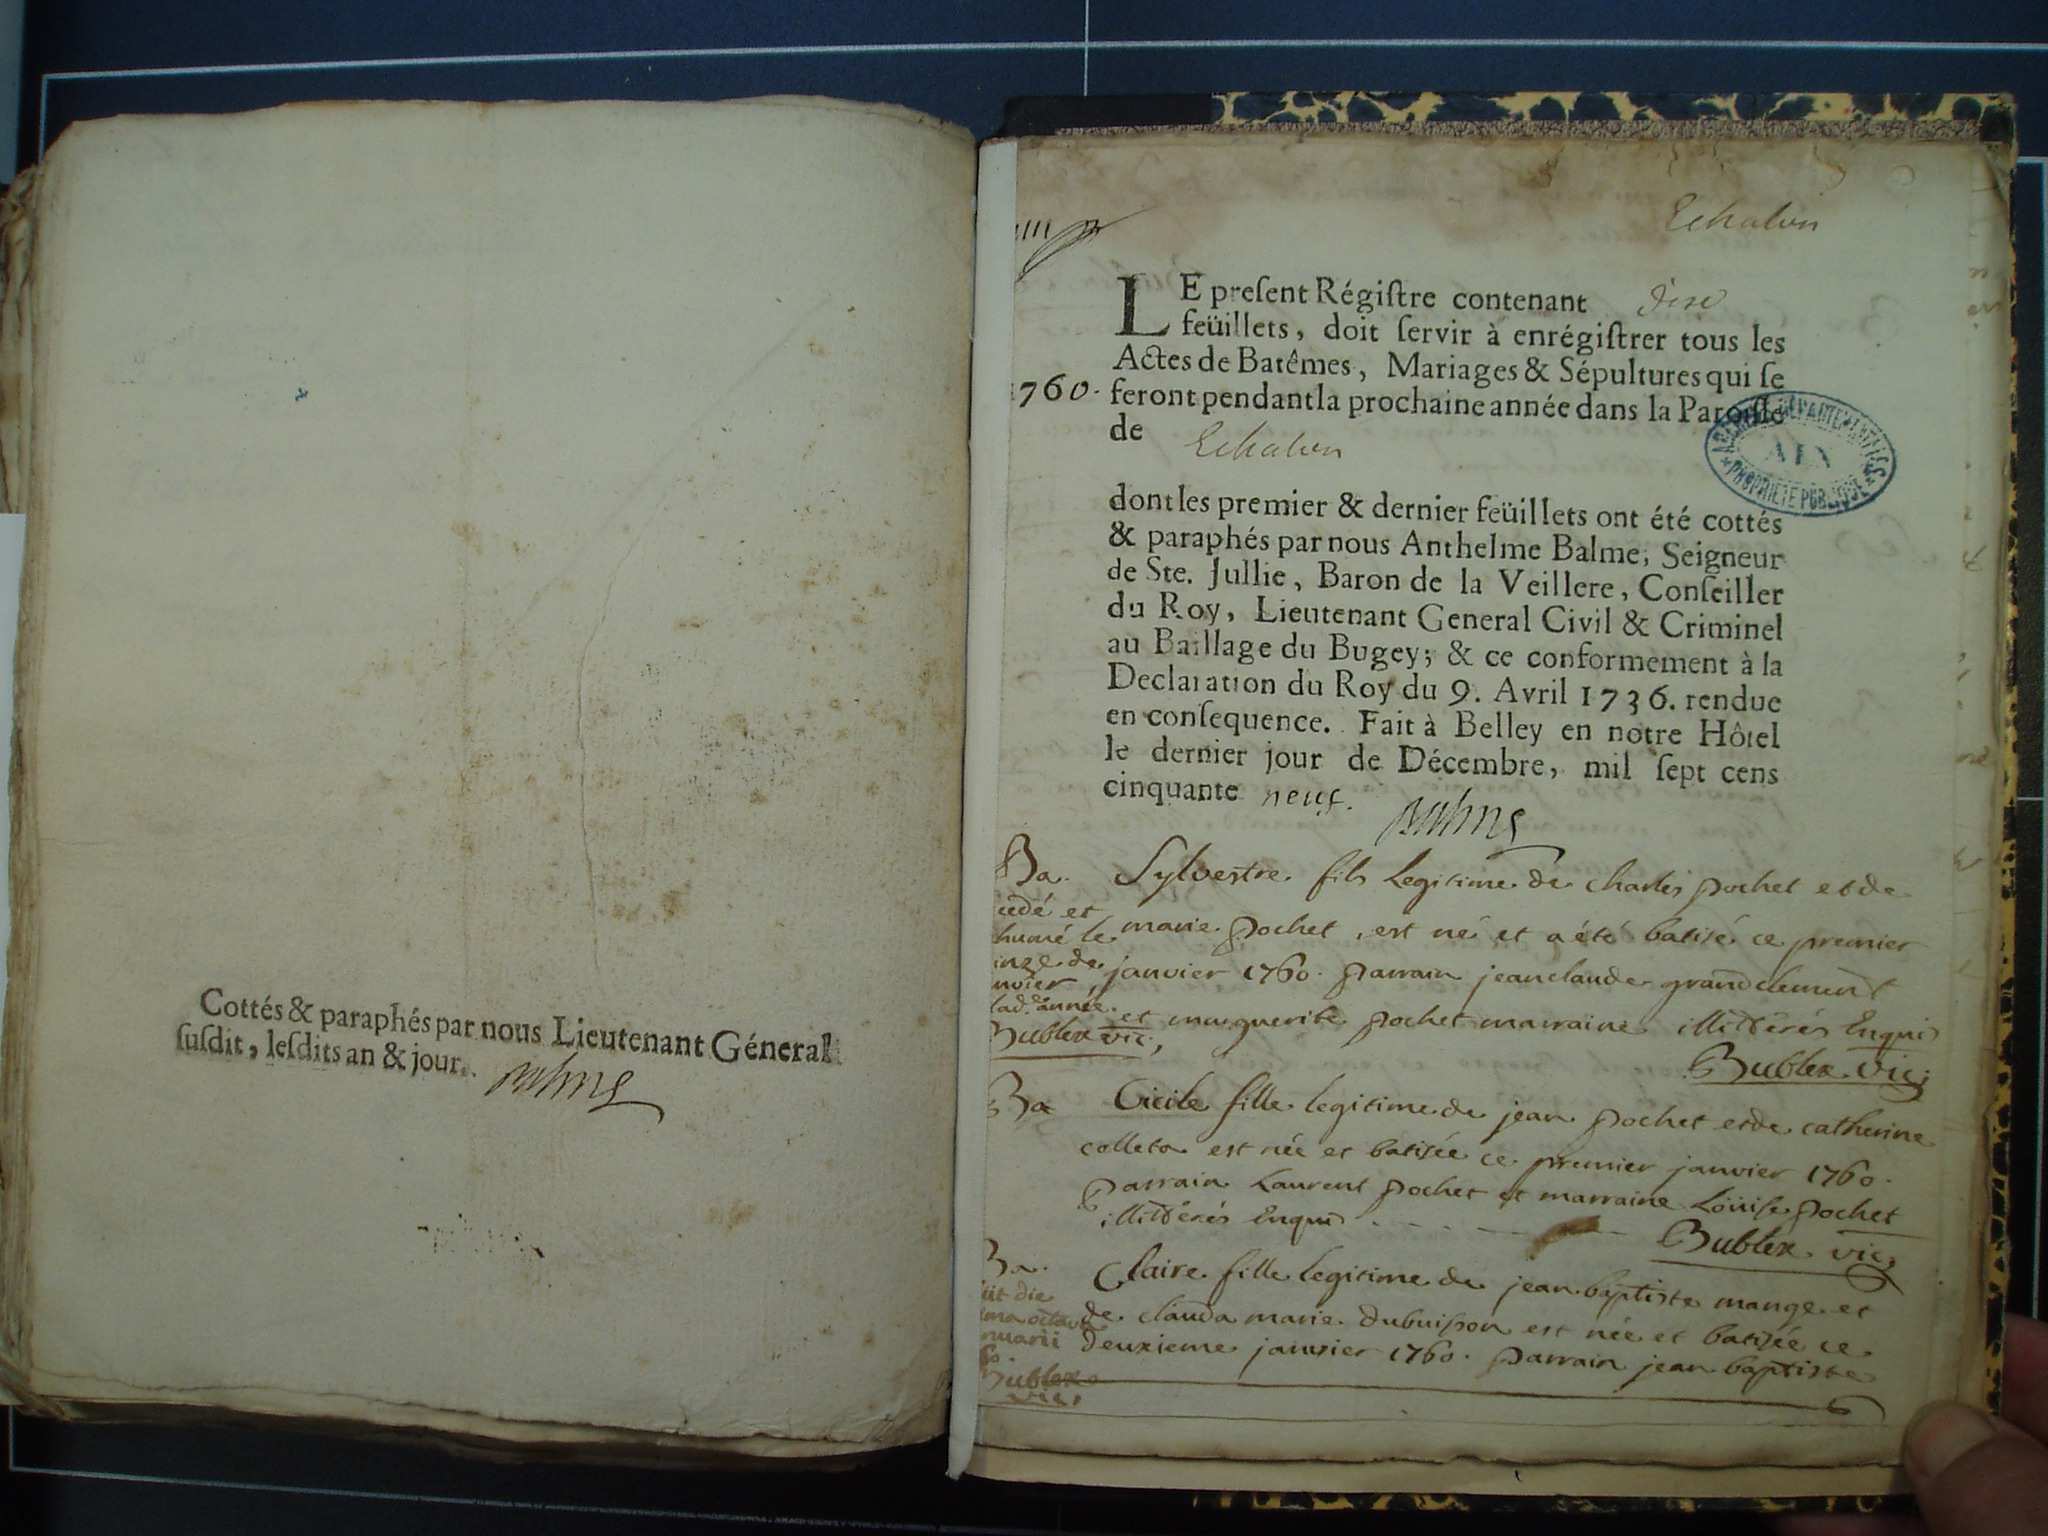 Cottés & paraphés par nous Lieutenant Géneral
susdit, lesdits an & jour.
Balme
Echalon
LE present Régistre contenant dix
feüillets, doit servir à enrégistrer tous les
Actes de Batêmes, Mariages & Sépultures qui se
1760. feront pendant la prochaine année dans la Paroisse
de Echalon
ARCHIVES DEPARTEMENTALES
AIN
PROPRIETE PUBLIQUE
dont les premier & dernier feüillets ont été cottés
& paraphés par nous Anthelme Balme, Seigneur
de Ste. Jullie, Baron de la Veillere, Conseiller
du Roy, Lieutenant General Civil & Criminel
au Baillage du Bugey; & ce conformement à la
Declaration du Roy du 9. Avril 1736. rendue
en consequence. Fait à Belley en notre Hôtel
le dernier jour de Décembre, mil sept cens
cinquante neuf. Balme
Ba. Sylvestre fils Legitime de charles pochet et de
marie pochet, est né et a été batisé ce premier
janvier 1760. parrain jean claude grandclement
et marguerite pochet marraine illitterés Enquis
Bublex vic,
Ba Cicile fille legitime de jean pochet et de catherine
colleta est née et batisée ce premier janvier 1760.
parrain Laurent pochet et marraine Loüise pochet
illitterés Enquis
Bublex vic,
Ba. Claire fille legitime de jean baptiste mange et
de clauda marie dubuisson est née et batisée ce
deuxieme janvier 1760. parrain jean baptiste
cedé et
humé le
inze de
nvier,
lad. année
Bublex vic,
iit die
ma octava
nuarii
60.
Bublex
vic,